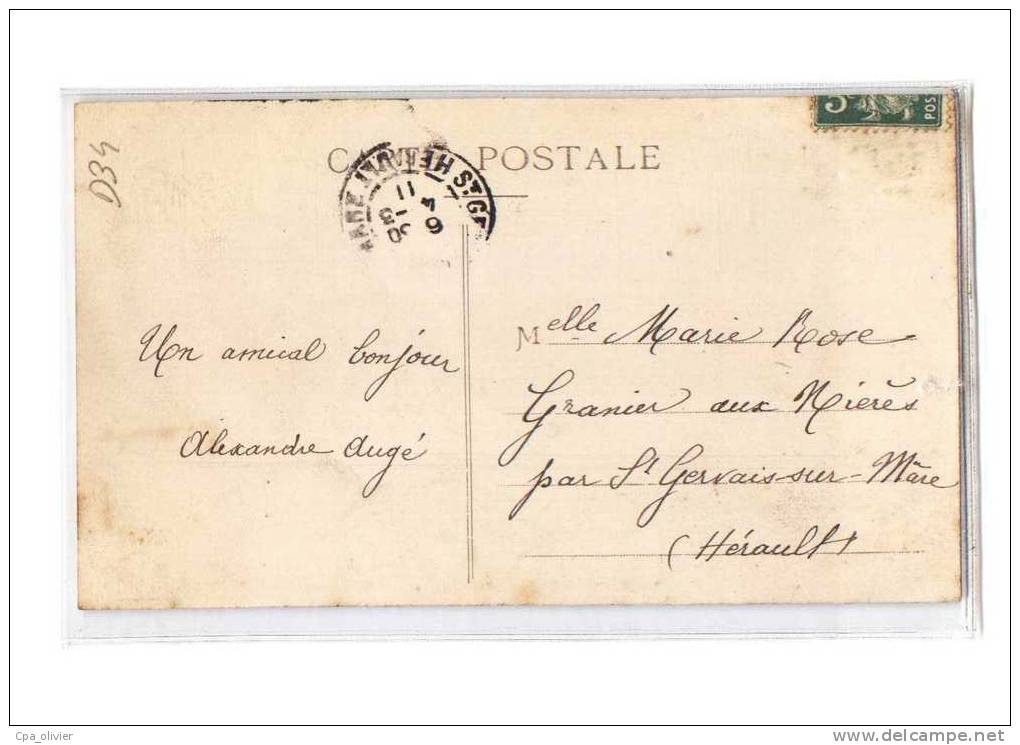 D34
CARTE POSTALE
HERAULT ST. GE
6 - 4
30 - 3
11
5
POS
Un amical bonjour
Alexandre Augé
Melle Marie Rose
Granier aux Nières
par St Gervais-sur-Mare
(Hérault)
Cpa_olivier
www.delcampe.net